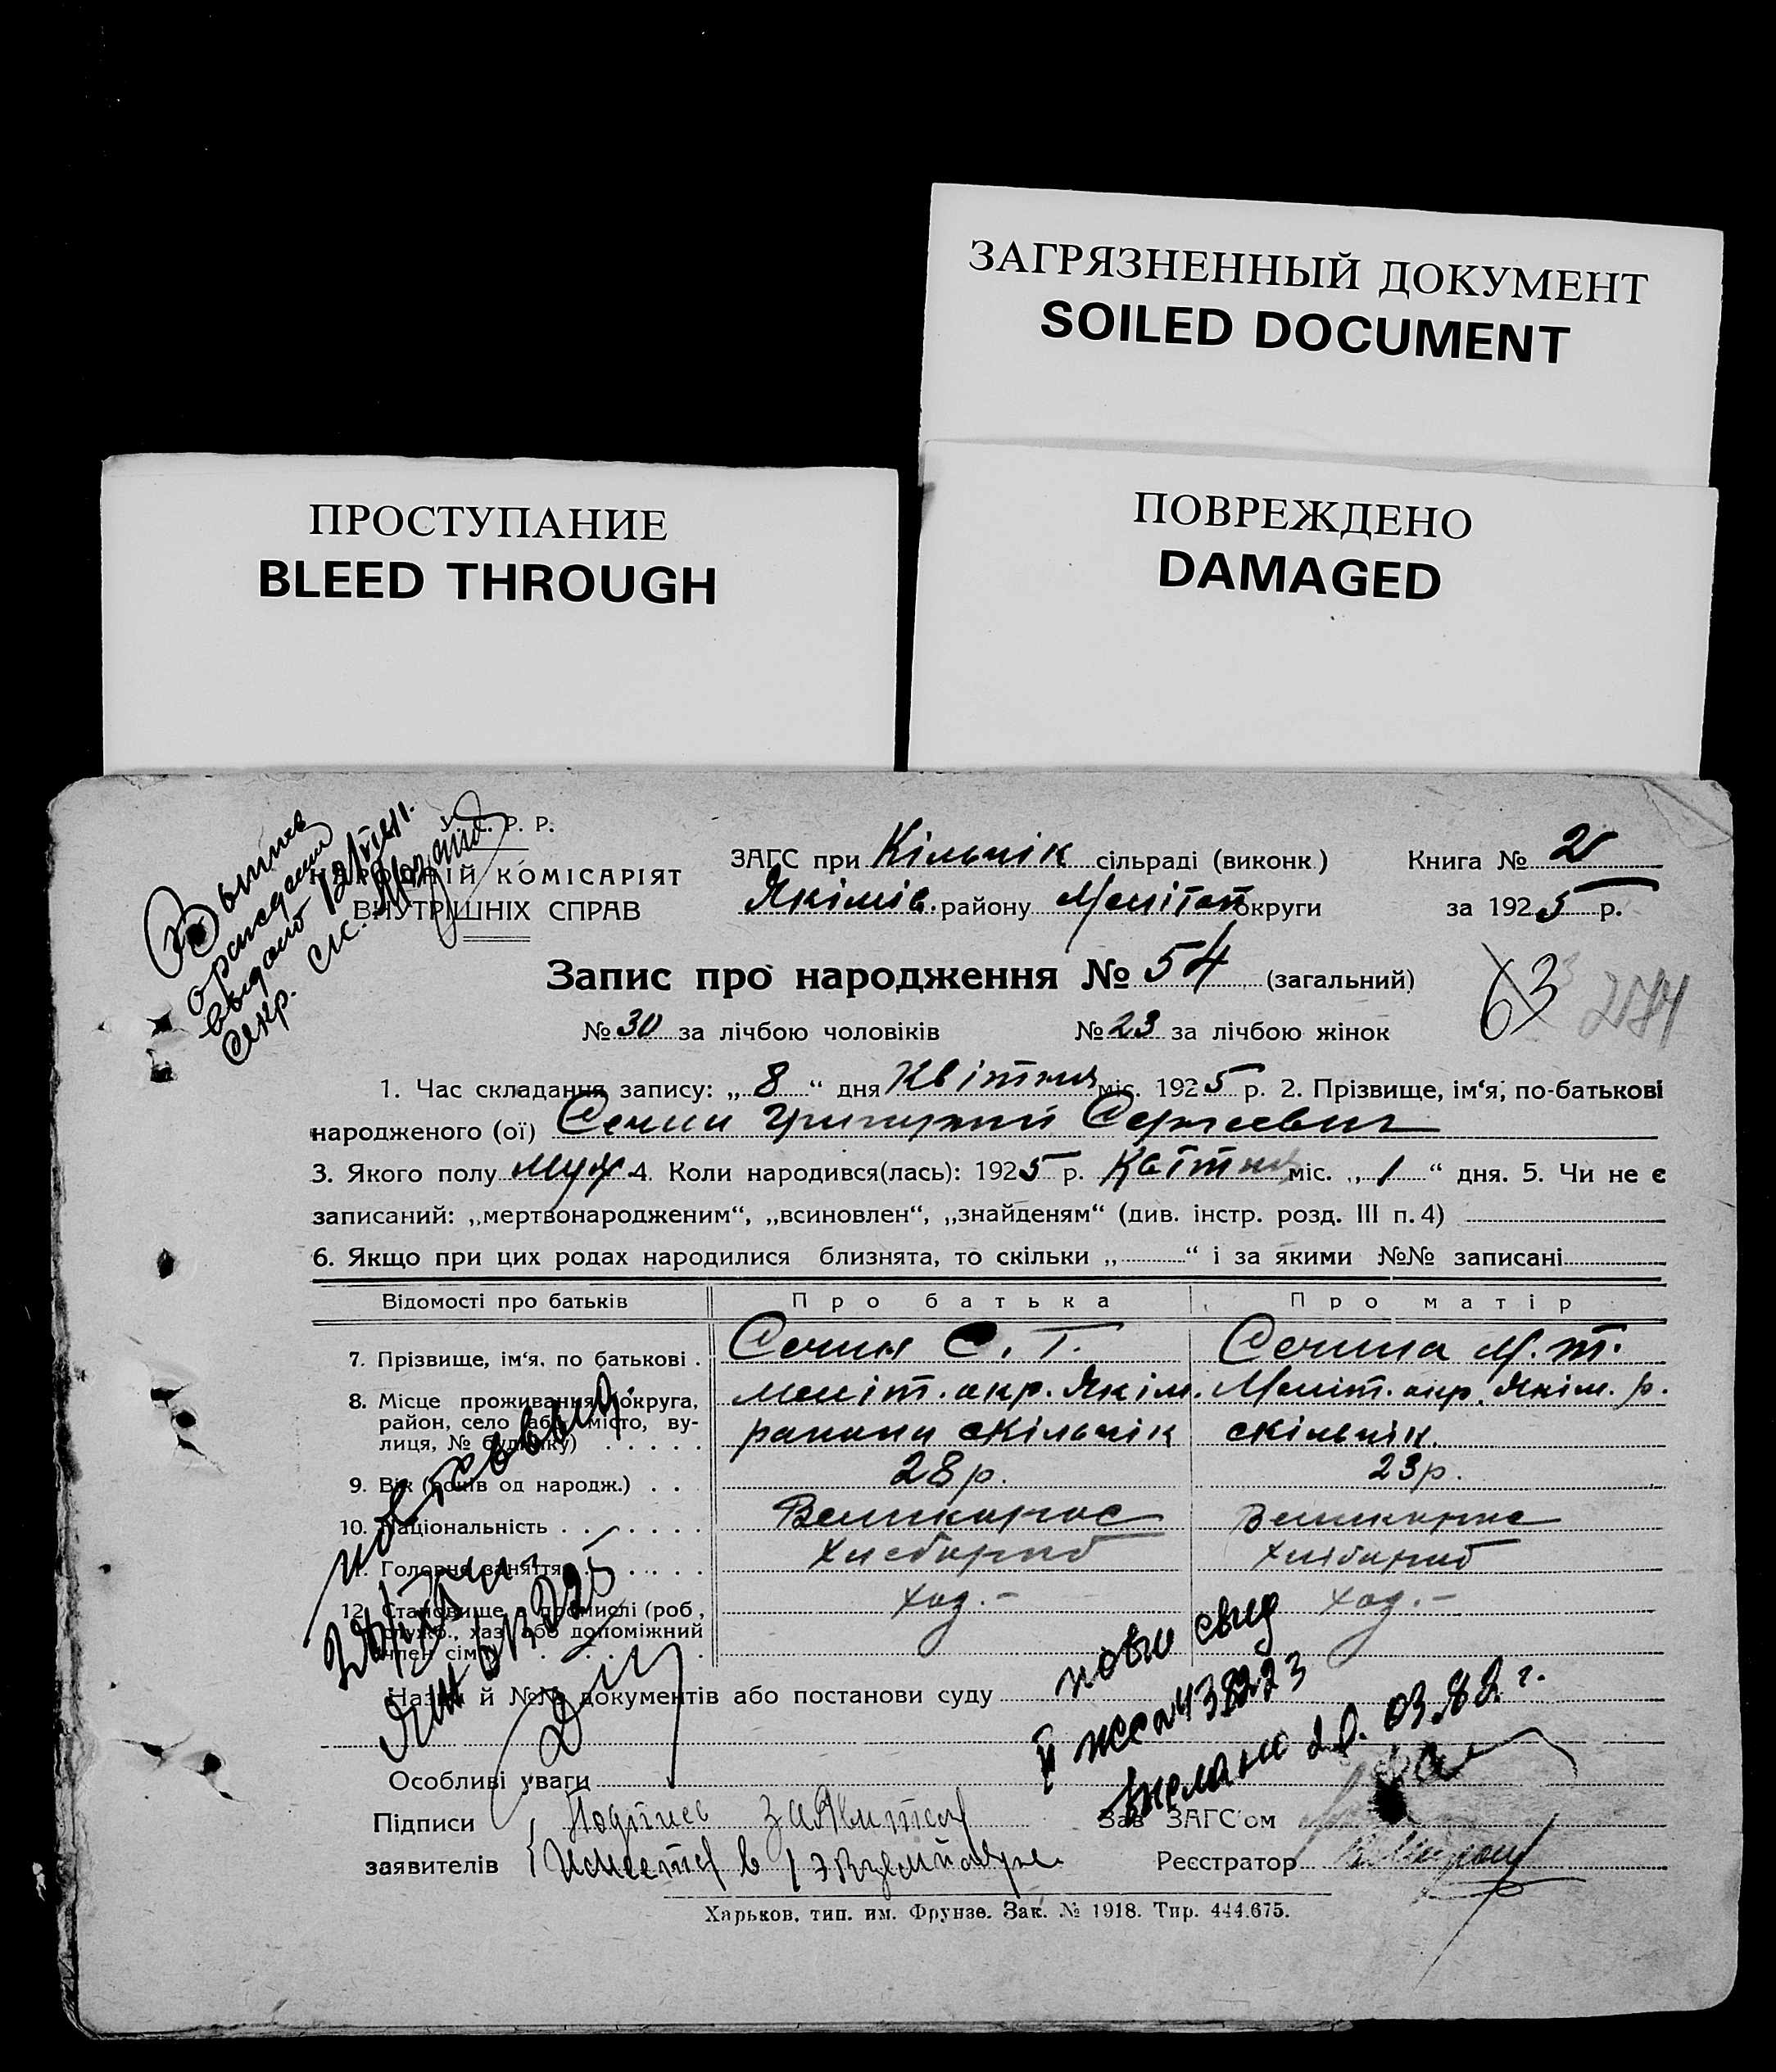 ЗАГРЯЗНЕННЫЙ ДОКУМЕНТ
SOILED DOCUMENT
ПРОСТУПАНИЕ
BLEED THROUGH
ПОВРЕЖДЕНО
DAMAGED
У. С. Р. Р.
НАРОДНІЙ КОМІСАРІЯТ
ВНУТРІШНІХ СПРАВ
ЗАГС при Кільчік сільраді (виконк.) Книга № 2
Якімів. району Мелітоп округи за 1925 р.
Запис про народження № 54 (загальний)
63 2584
№ 30 за лічбою чоловіків № 23 за лічбою жінок
1. Час складання запису: „ 8 “ дня Квітня міс. 1925 р. 2. Прізвище, ім‘я, по-батькові
народженого (ої) Сечин Григорий Сергеевич
3. Якого полу муж 4. Коли народився(лась): 1925 р. Квітня міс. „ 1 “ дня. 5. Чи не є
записаний: „мертвонародженим“, „всиновлен“, „знайденям“ (див. інстр. розд. III п. 4)
6. Якщо при цих родах народилися близнята, то скільки „ “ і за якими №№ записані
Відомості про батьків Про батька Про матір
7. Прізвище, ім‘я, по батькові . Сечин С. Г. Сечина М. Т.
8. Місце проживання (округа, Меліт. окр. Якім. Меліт. окр. Якім. р.
район, село або місто, вулиця, № будинку) району с Кільчік с Кільчік.
9. Вік (років од народж.) . . 28 р. 23 р.
10. Національність Великорос Великорос
11. Головне заняття Хлебороб Хлібороб
12. Становище в промислі (роб., Хаз. – Хаз. –
служб., хаз. або допоміжний
член сім
нов свид
438223
20.03.82 г.
Назви й №№ документів або постанови суду
Особливі уваги
Підписи Подпись заявителя Зав ЗАГС‘ом
заявителів Имеется в 1 экземпляре. Реєстратор
Харьков, тип. им. Фрунзе. Зак. № 1918. Тир. 444.675.